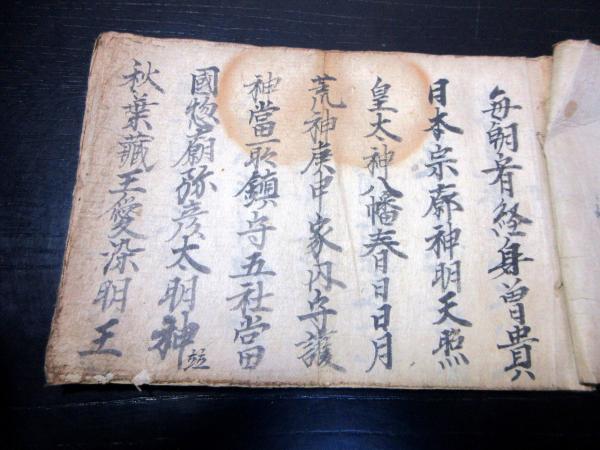 毎朝看経身曽貴
日本宗廓神明天照
皇太神八幡春日日月
荒神庚申家内守護
神當所鎮守五社當
國惣廟弥彦太明神並
秋葉蔵王愛染明王